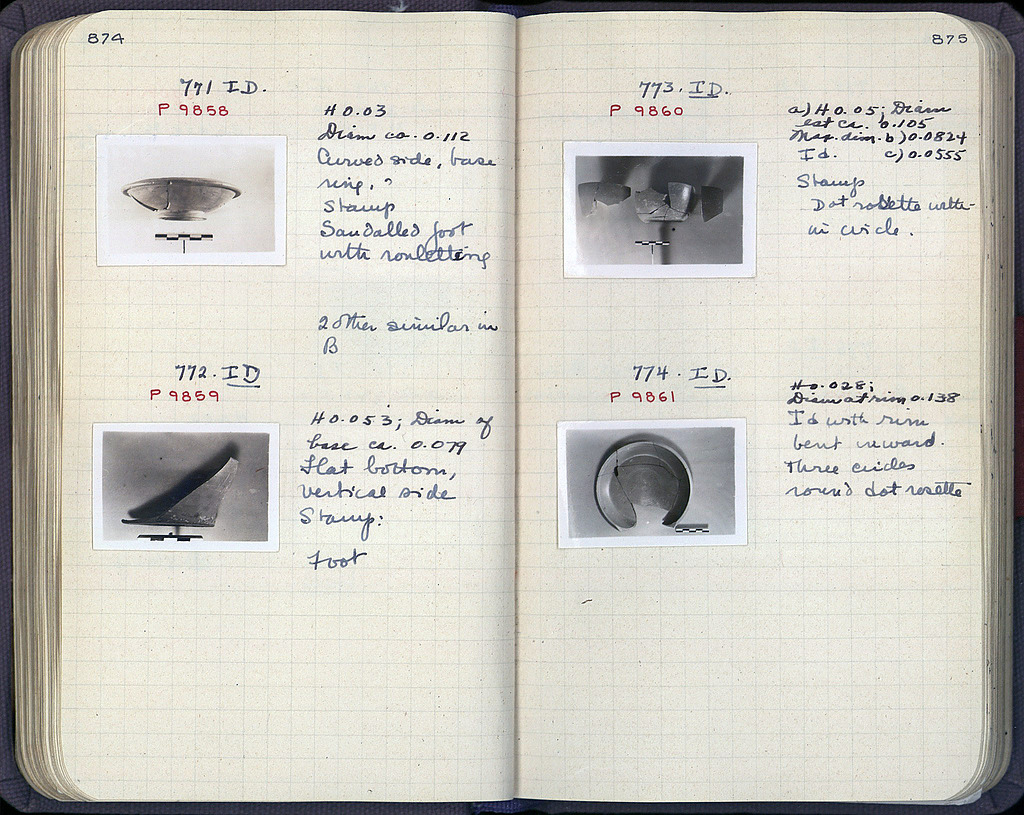 874
771 ID.
P 9858
H 0.03
Diam ca. 0.112
Curved side, base
ring. ?
Stamp
Sandalled foot
with rouletting
2 other similar in
B
772. ID
P 9859
H 0.053; Diam of
base ca. 0.079
Flat bottom,
vertical side
Stamp:
Foot
875
773. ID.
P 9860
a) H 0.05; Diam
est ca. 0.105
Max. dim. b) 0.0824
Id. c) 0.0555
Stamp
Dot rosette with-
in circle.
774. ID.
P 9861
H 0.028;
Diam at rim 0.138
Id with rim
bent inward.
Three circles
round dot rosette